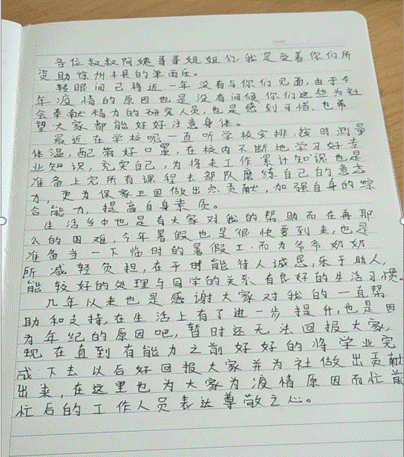 各位叔叔阿姨哥哥姐姐们,我是受着你们所
资助徐州丰县的
转眼间已将近一年没有与你们见面,由于今
年疫情的原因也是没有问候你们这些为社
会奉献精力的研究人员,也是感到可惜,也希
望大家都能好好注意身体。
最近在学校呢一直听学校安排,按时测量
体温,配带好口罩,在校内不断地学习好专
业知识,充实自己,为将来工作累计知识也是
准备上完所有课程去部队磨练自己的意志
力,更为保家卫国做出点贡献,加强自身的综
合能力,提高自身素质。
生活当中也是有大家对我的帮助而在再那
么的困难,今年暑假也是很快要到来,也是
准备当一下临时的暑假工,而为爷爷奶奶
所减轻负担,在于时能待人诚恳,乐于助人,
能较好的处理与同学的关系有良好的生活习惯。
几年以来也是感谢大家对我的一直帮
助和支持,在生活上有了进一步提升,也是因
为年纪的原因吧,暂时还无法回报大家,
现在直到有能力之前好好的将学业完
成下去以后好回报大家并为社做出贡献
出来,在这里也为大家为疫情原因而忙前
忙后的工作人员表达尊敬之心。